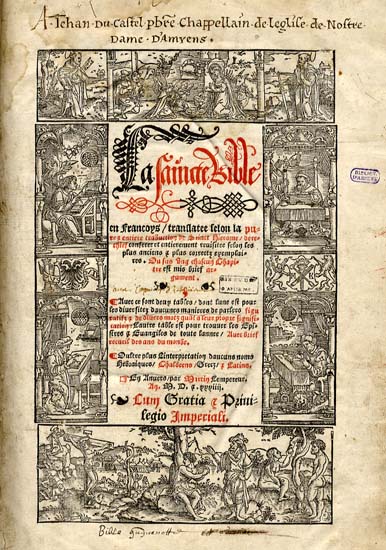 A Jehan Du Castel pbre Chappellain de leglise de Nostre
Dame D'Amyens.
La saincte Bible
en Francoys / translatee selon la pu⸗
re et entiere traduction de Sainct Hierome / dere⸗
chief conferee et entierement reuisitee selon les
plus anciens et plus correctz exemplai⸗
res. Ou sus vng chascun Chapi⸗
tre est mis brief ar⸗
gument.
Auec ce sont deux tables / dont lune est pour
les diuersitez daucunes manieres de parler
et de diuers motz quāt a leur propre signifi⸗
cation: Lautre table est pour trouuer les Epi⸗
stres et Euangiles de toute lannee / Auec brief
recueil des ans du monde.
Oultre plus Linterpretation daucuns noms
Hebraiques / Chaldeens / Grecz / et Latins.
En Anuers / par Martin Lempereur.
An. M. D. et. xxxiiij.
Cum Gratia et Priui⸗
legio Imperiali.
Bible